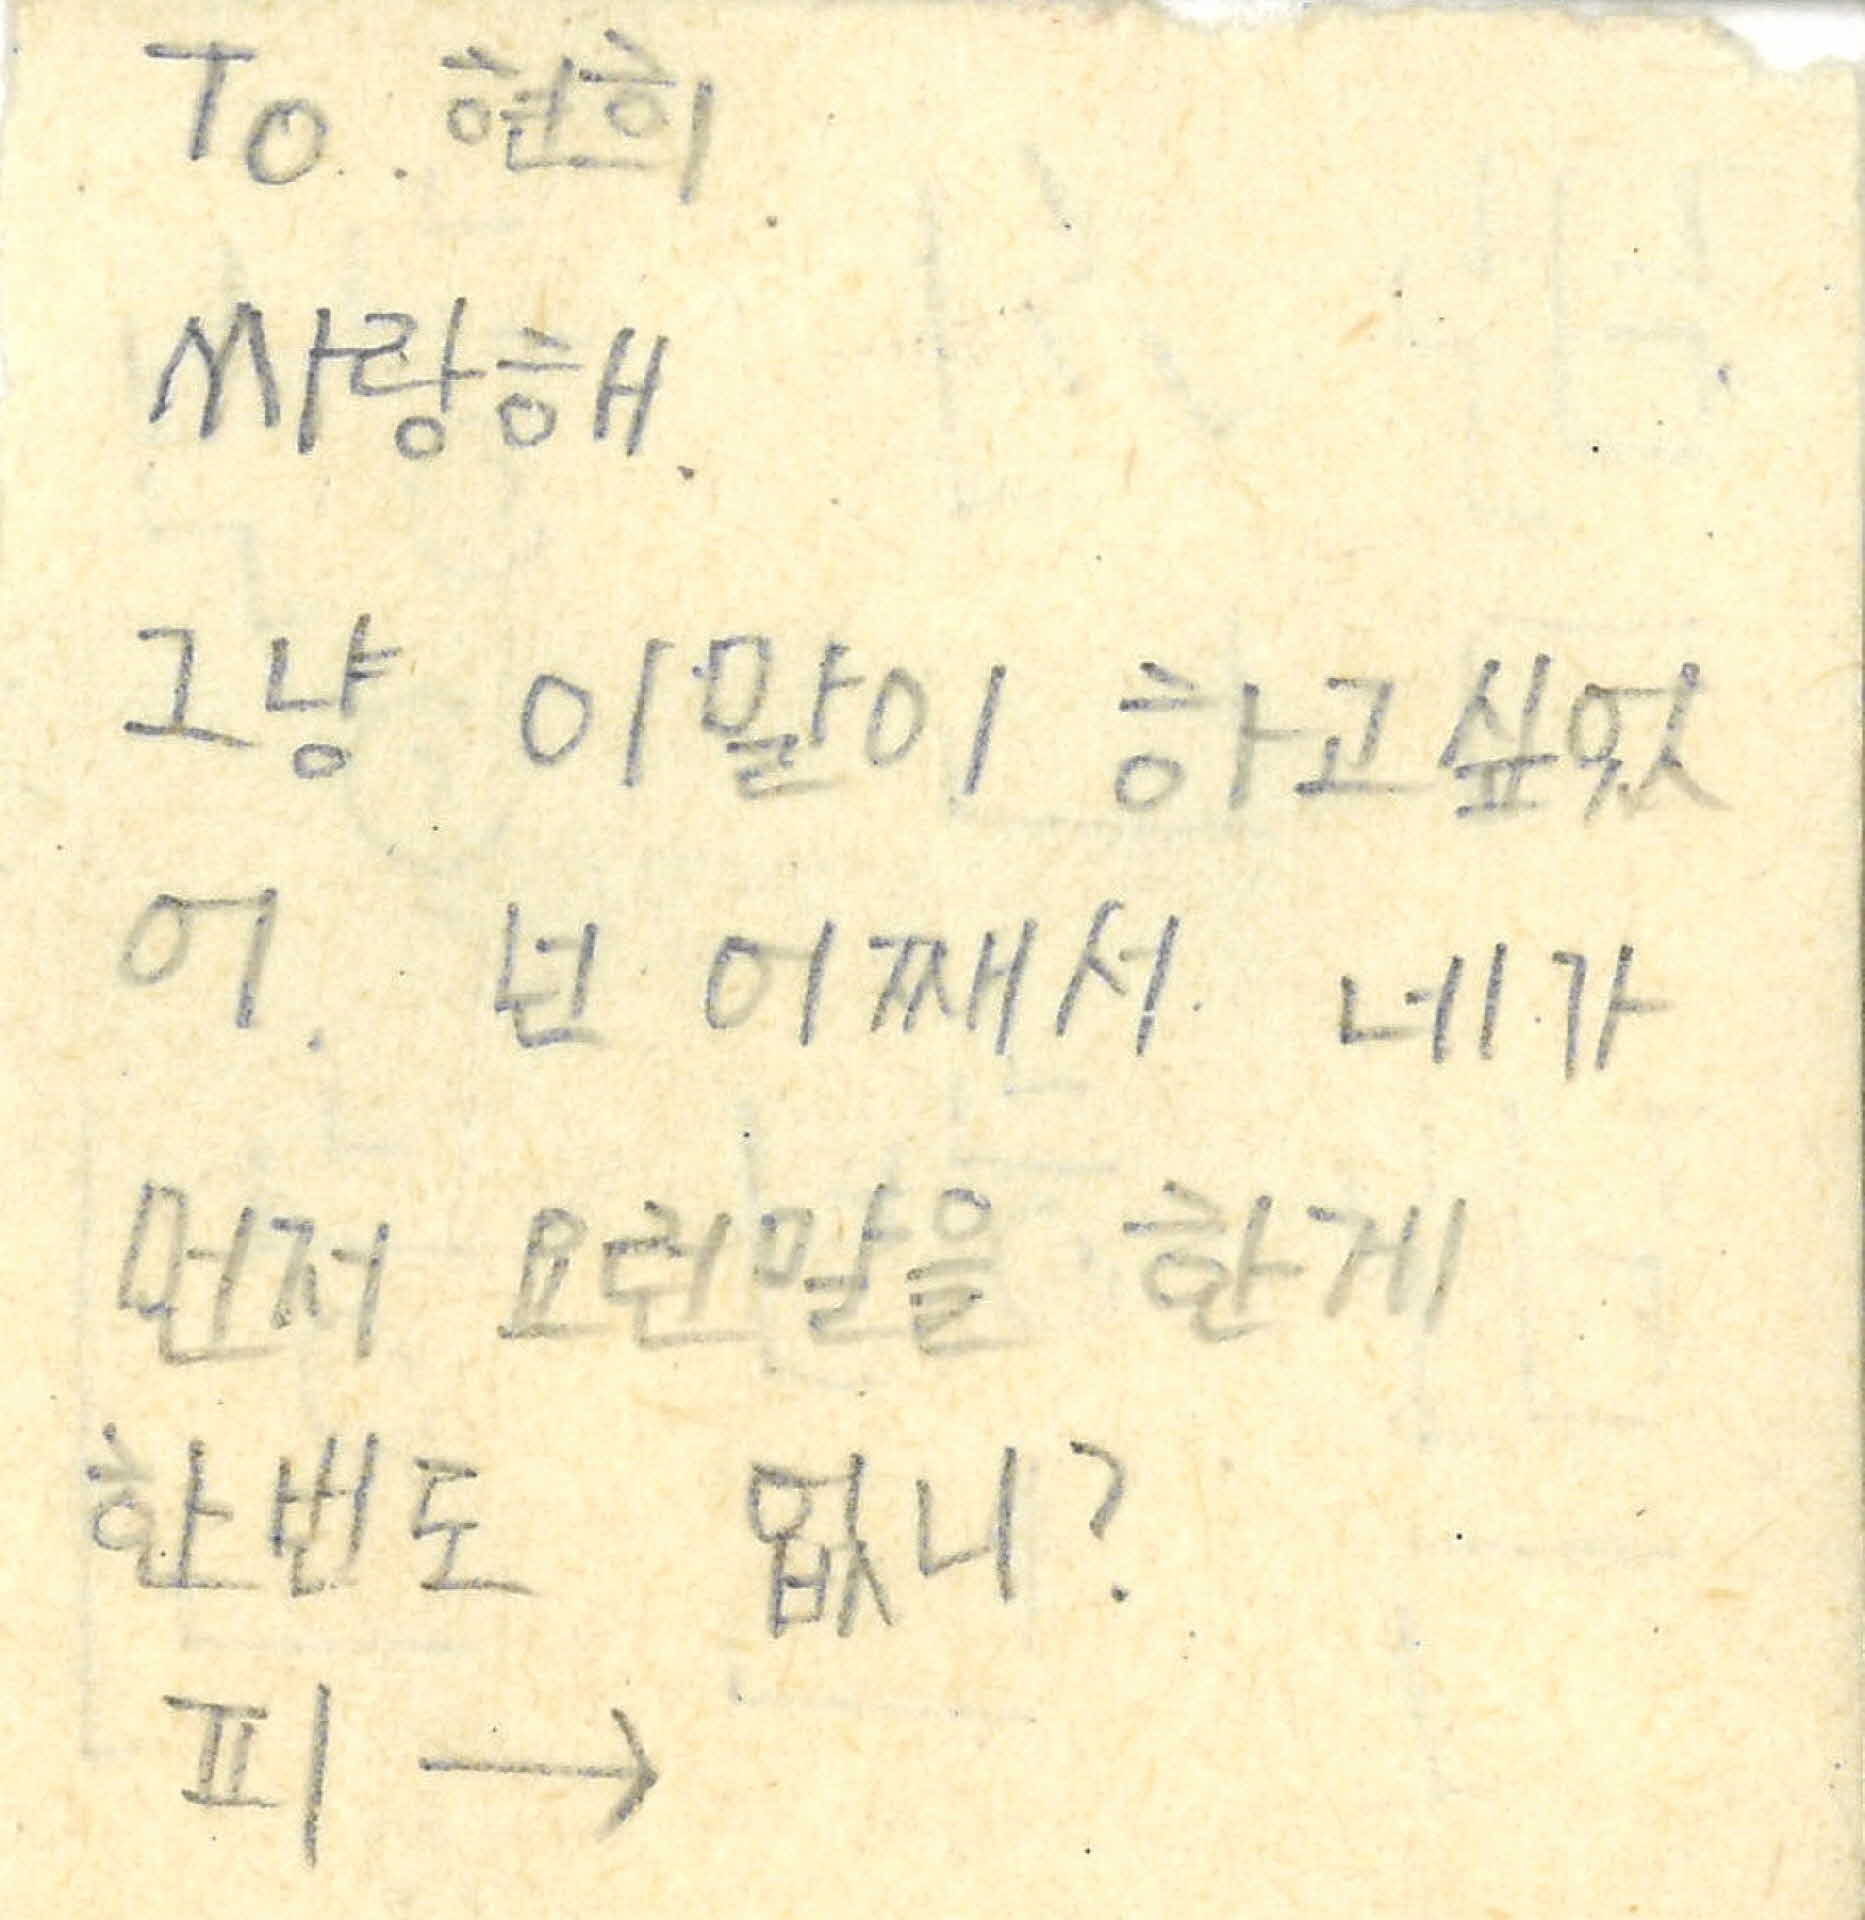 To. 현희
싸랑해.
그냥 이말이 하고싶었
어. 넌 어째서 네가
먼저 요런말을 한게
한번도 없니?
피 →